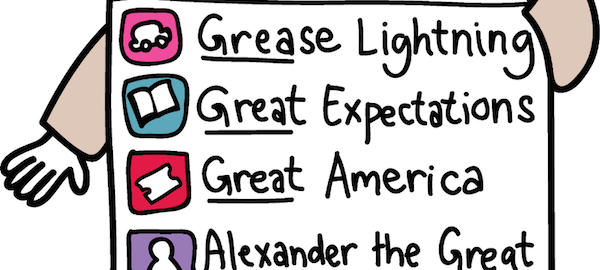 Grease Lightning
Great Expectations
Great America
Alexander the Great